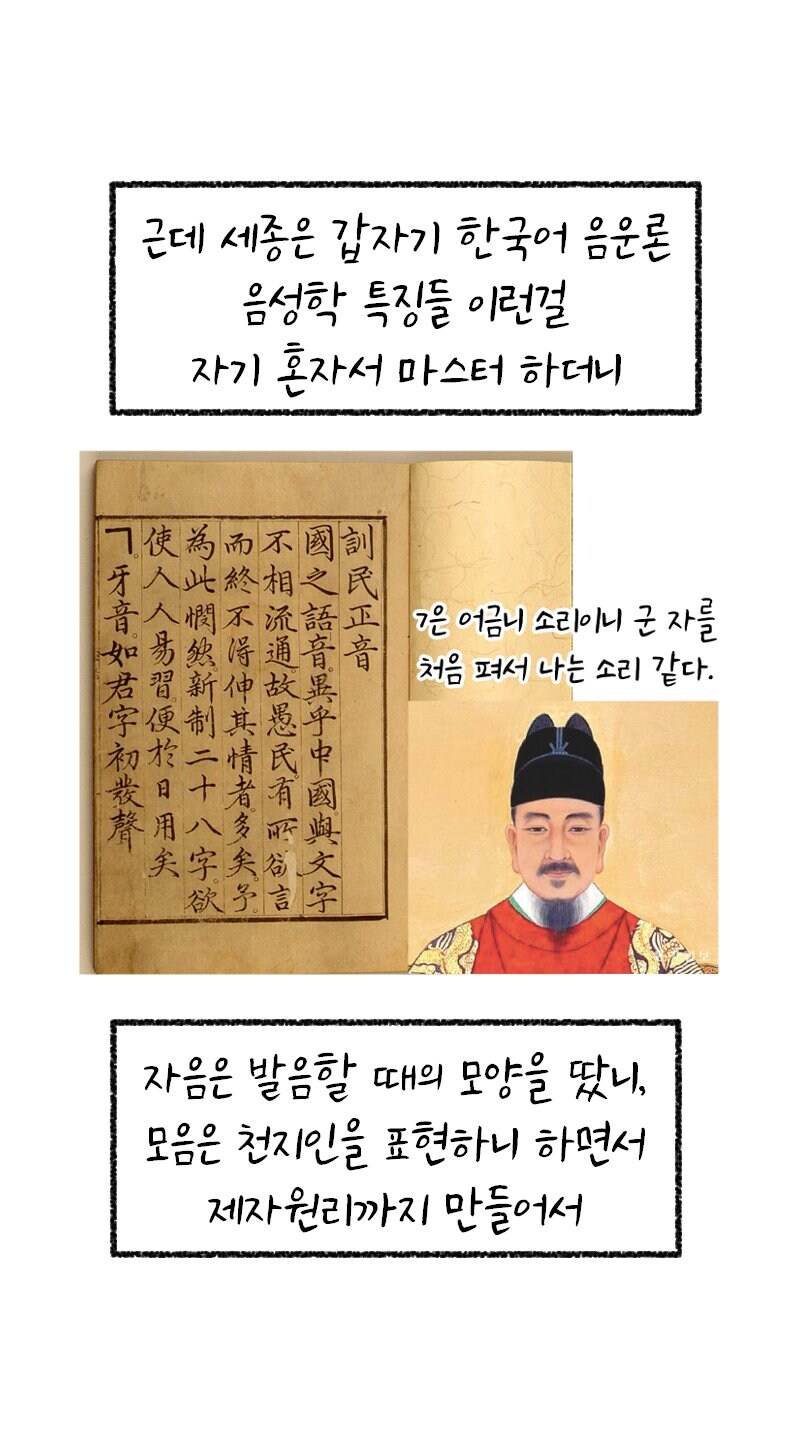 근데 세종은 갑자기 한국어 음운론
음성학 특징들 이런걸
자기 혼자서 마스터 하더니
訓民正音
國之語音。異乎中國。與文字
不相流通。故愚民。有所欲言
而終不得伸其情者。多矣。予。
為此憫然。新制二十八字。欲
使人人易習。便於日用矣
ㄱ。牙音。如君字初發聲
ㄱ은 어금니 소리이니 군 자를
처음 펴서 나는 소리 같다.
자음은 발음할 때의 모양을 땄니,
모음은 천지인을 표현하니 하면서
제자원리까지 만들어서